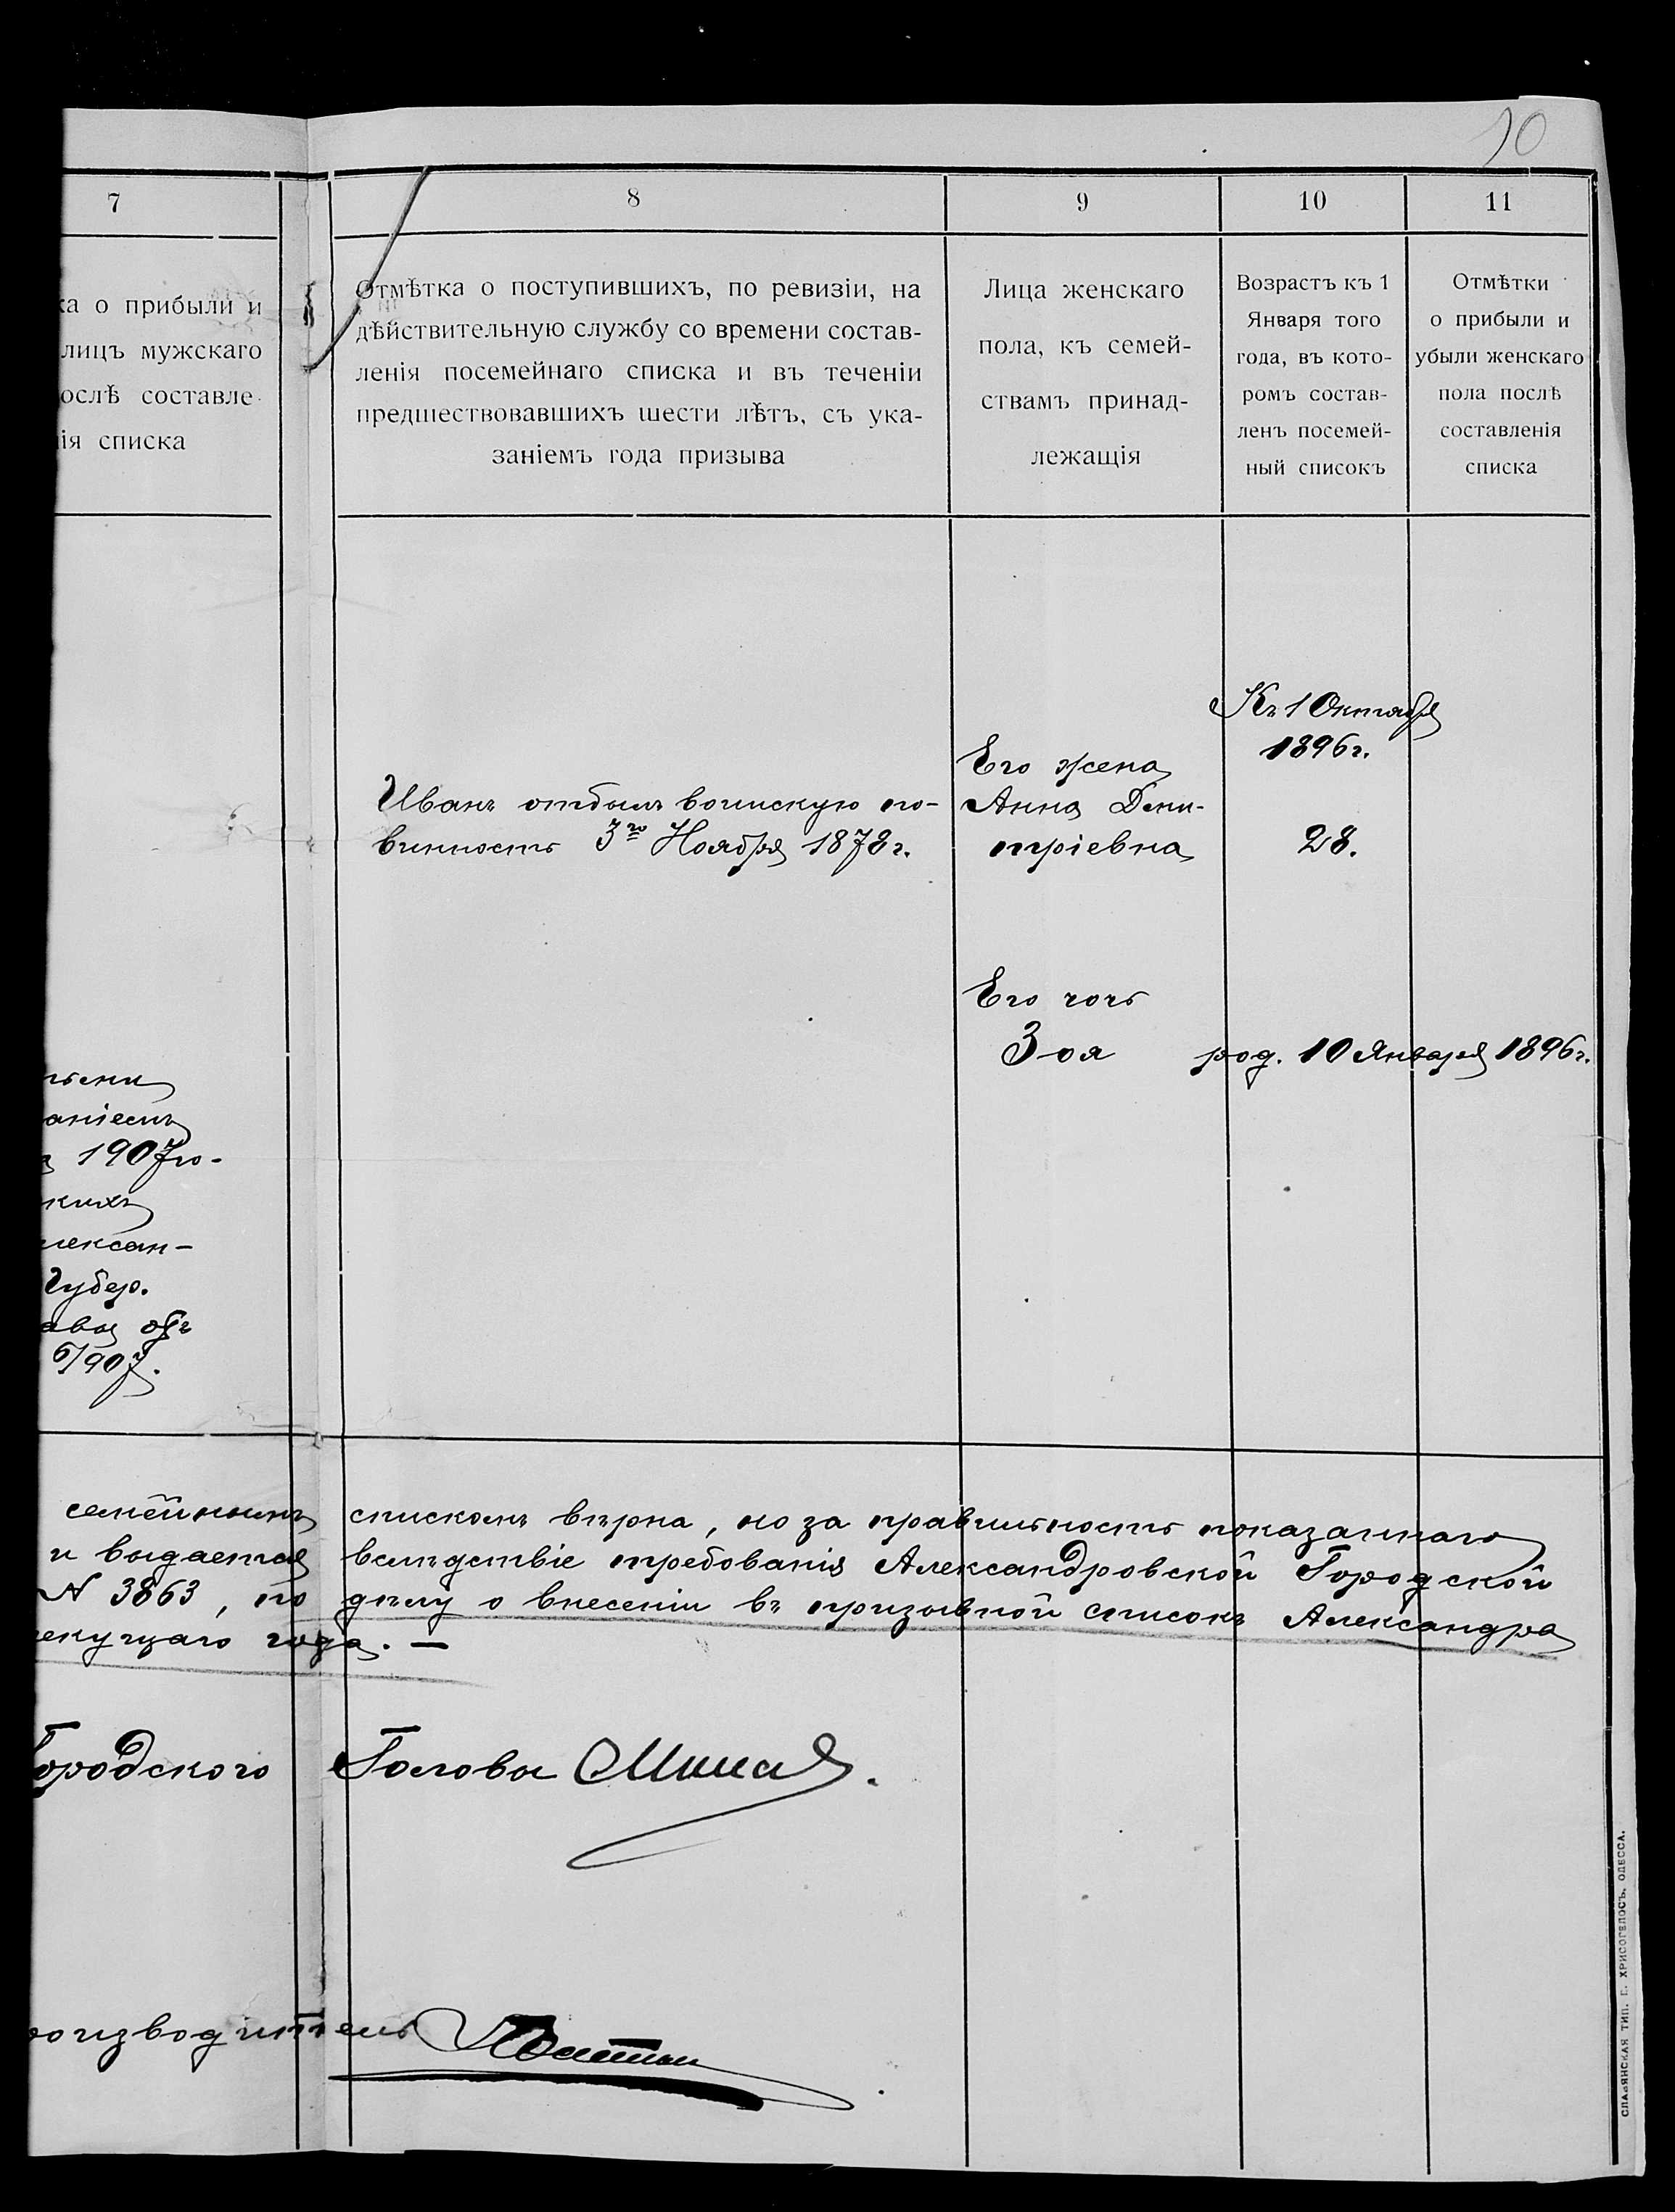 10
7
8
9
10
11
ка о прибыли и
лицъ мужскаго
ослѣ составле-
ія списка
Отмѣтка о поступившихъ, по ревизіи, на
дѣйствительную службу со времени состав-
ленія посемейнаго списка и въ теченіи
предшествовавшихъ шести лѣтъ, съ ука-
заніемъ года призыва
Лица женскаго
пола, къ семей-
ствамъ принад-
лежащія
Возрастъ къ 1
Января того
года, въ кото-
ромъ состав-
ленъ посемей-
ный списокъ
Отмѣтки
о прибыли и
убыли женскаго
пола послѣ
составленія
списка
Къ 1 Октября
1896 г.
Иванъ отбылъ воинскую по-
винность 3го Ноября 1878 г.
Его жена
Анна Дми-
тріевна
28.
Его дочь
Зоя
род. 10 Января 1896 г.
аніемъ
1907 го-
кихъ
лексан-
Губер.
6/907.
семейнымъ спискомъ вѣрна, но за правильность показаннаго
и выдается вслѣдствіе требованія Александровской Городской
№ 3863, по дѣлу о внесеніи въ призывной списокъ Александра
екущаго года. —
Городского Головы
оизводитель
СЛАВЯНСКАЯ ТИП. Е. ХРИСОГЕЛОСЪ. ОДЕССА.